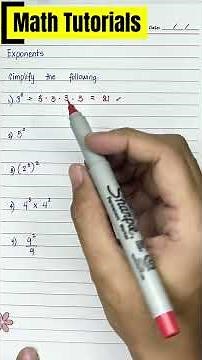 Math Tutorials
Date: / /
Exponents
Simplify the following:
1.) 3⁴ = 3 · 3 · 3 · 3 = 81 ✓
2.) 5²
3.) (2³)²
4.) 4³ × 4²
5.) 9²
9
Sharpie